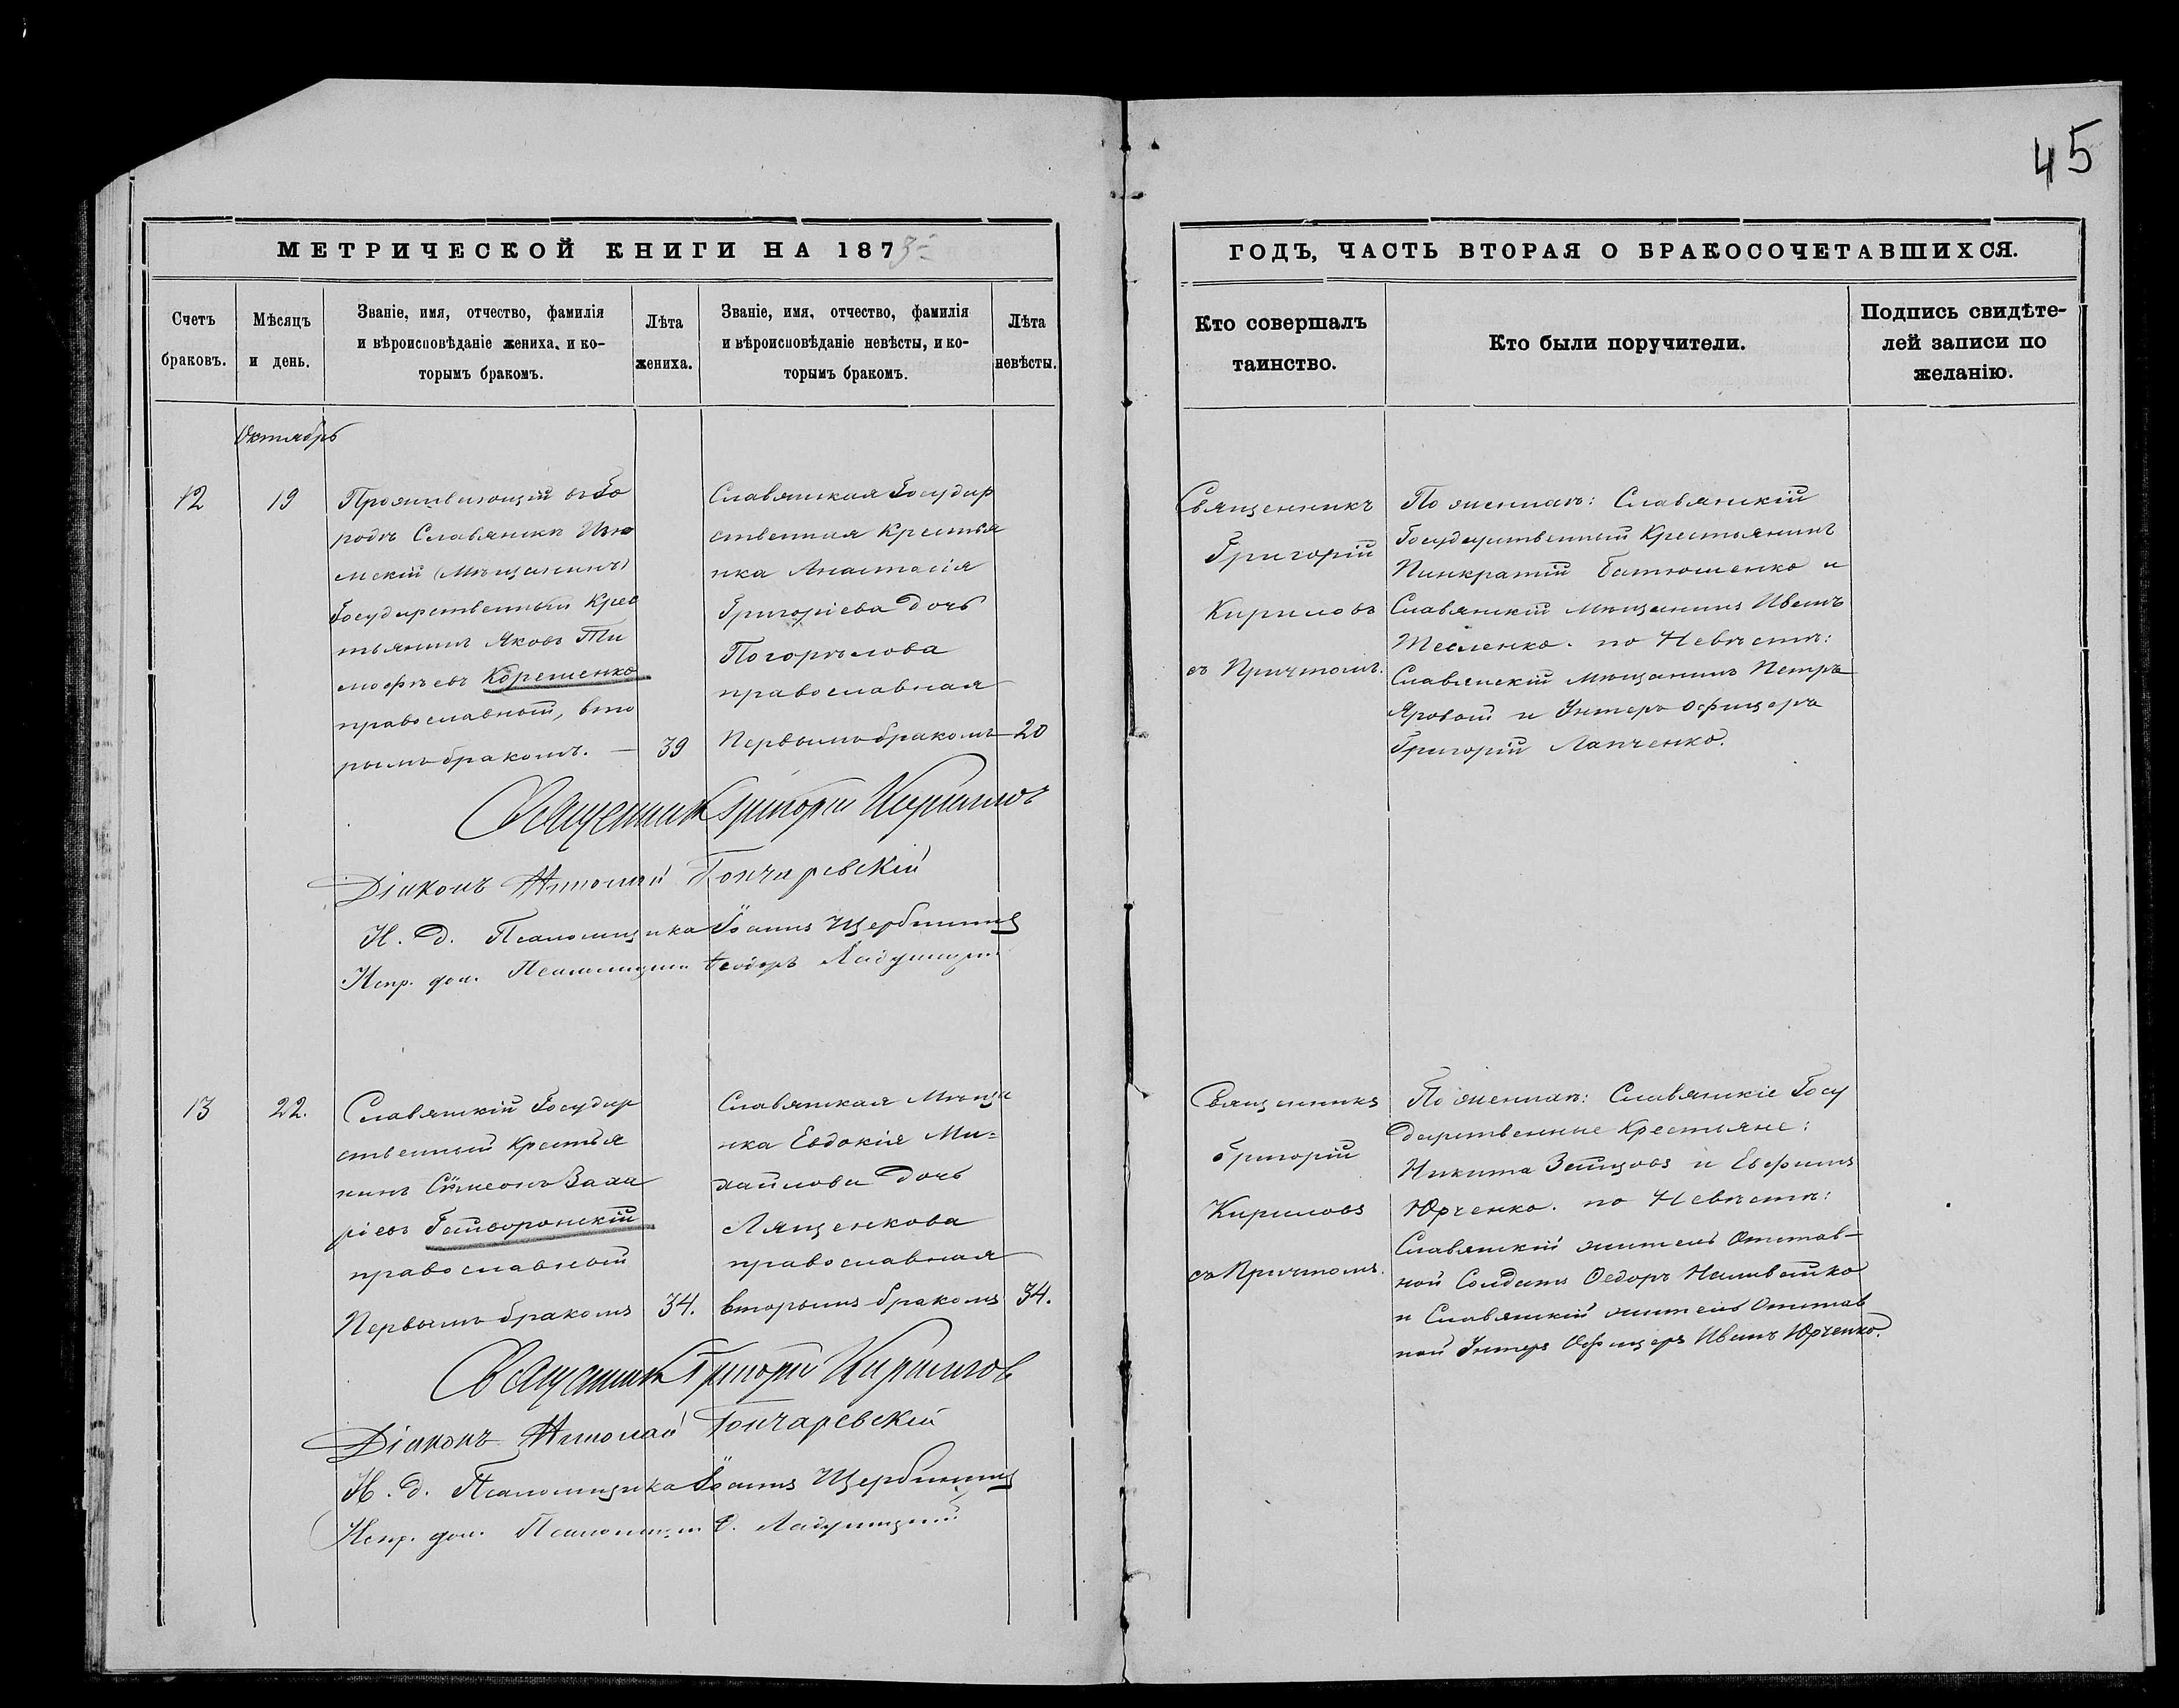 45
МЕТРИЧЕСКОЙ КНИГИ НА 1873
ГОДЪ, ЧАСТЬ ВТОРАЯ О БРАКОСОЧЕТАВШИХСЯ.
Счетъ
браковъ.
Мѣсяцъ
и день.
Званіе, имя, отчество, фамилія
и вѣроисповѣданіе жениха, и ко-
торымъ бракомъ.
Лѣта
жениха.
Званіе, имя, отчество, фамилія
и вѣроисповѣданіе невѣсты, и ко-
торымъ бракомъ.
Лѣта
невѣсты.
Кто совершалъ
таинство.
Кто были поручители.
Подпись свидѣте-
лей записи по
желанію.
Октябрь
12
19
Проживающій въ Го
родѣ Славянскѣ Изю
мскій (Мѣщанинъ)
Государственный Крес
тьянинъ Яковъ Ти
мофѣевъ Корешенко
православный, вто
рымъ бракомъ. —
39
Славянская Государ
ственная Крестья
нка Анастасія
Григоріева дочь
Погорѣлова
православная
Первымъ бракомъ
20
Священникъ
Григорій
Кириловъ
съ Причтомъ.
По женихѣ: Славянскій
Государственный Крестьянинъ
Панкратій Батюшенко и
Славянскій мѣщанинъ Иванъ
Тесленко. по Невѣстѣ:
Славянскій мѣщанинъ Петръ
Яровой и Унтеръ офицеръ
Григорій Лапченко.
Священникъ Григорій Кириловъ
Діаконъ Николай Гончаревскій
И. д. Псаломщика Іоаннъ Щербининъ
Испр. дол. Псаломщика Ѳеодоръ
13
22.
Славянскій Государ
ственный Крестья
нинъ Симеонъ Вале
ріевъ Гайворонскій
православный
Первымъ бракомъ
34.
Славянская Мѣща
нка Евдокія Ми=
хайлова дочь
Лященкова
православная
вторымъ бракомъ
34.
Священникъ
Григорій
Кириловъ
съ Причтомъ.
По женихѣ: Славянскіе Госу
дарственные Крестьяне:
Никита Зайцовъ и Евфимъ
Юрченко. по Невѣстѣ:
Славянскій житель Отстав-
ной Солдатъ Ѳедоръ Наливайко
и Славянскій житель Отстав
ной Унтеръ Офицеръ Иванъ Юрченко.
Священникъ Григорій Кириловъ
Діаконъ Николай Гончаревскій
И. д. Псаломщика Іоаннъ Щербининъ
Испр. дол. Псаломщика Ѳ.